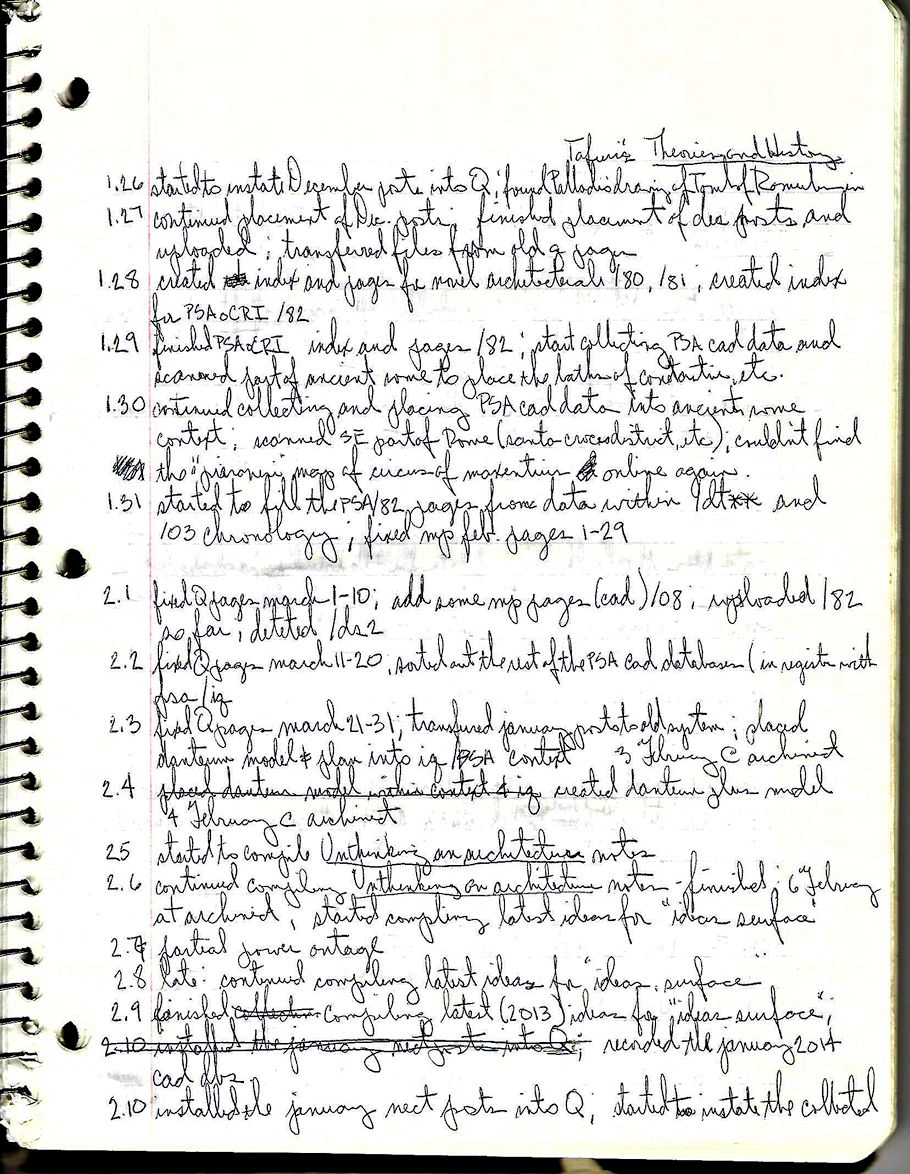 Tafuri's Theories and History
1.26 started to instate December posts into Q; found Palladio's drawing of Tomb of Romulus in
1.27 continued placement of Dec. posts; finished placement of dec posts, and
uploaded; transferred files from old q page
1.28 created index and pages for novel architecturals /80, /81; created index
for PSAoCRI /82
1.29 finished PSAoCRI index and pages /82; start collecting PSA cad data and
scanned part of ancient rome to place the baths of constantine, etc.
1.30 continued collecting and placing PSA cad data into ancient rome
context; scanned SE part of Rome (santa croce district, etc); couldn't find
the "piranesi" map of circus of maxentius online again.
1.31 started to fill the PSA/82 pages from data within 9dt** and
/03 chronology; fixed mp feb. pages 1-29
2.1 fixed Q pages march 1-10; add some mp pages (cad) /08; uploaded /82
so far; deleted /ds2
2.2 fixed Q pages march 11-20, sorted out the rest of the PSA cad databases (in register with
psa/iq
2.3 fixed Q pages march 21-31; transfered january posts to old system; placed
danteum model & plan into iq/PSA context 3 February @ archinect
2.4 placed danteum model within context & iq created danteum plus model
4 February @ archinect
2.5 started to compile Unthinking an architecture notes
2.6 continued compiling Unthinking an architecture notes - finished; 6 February
at archinect; started compiling latest ideas for "ideas surface"
2.7 partial power outage
2.8 late: continued compiling latest ideas for "ideas surface"
2.9 finished collection compiling latest (2013) ideas for "ideas surface";
2.10 installed the january nect posts into Q; recorded the january 2014
cad dbs
2.10 installed the january nect posts into Q; started to instate the collected